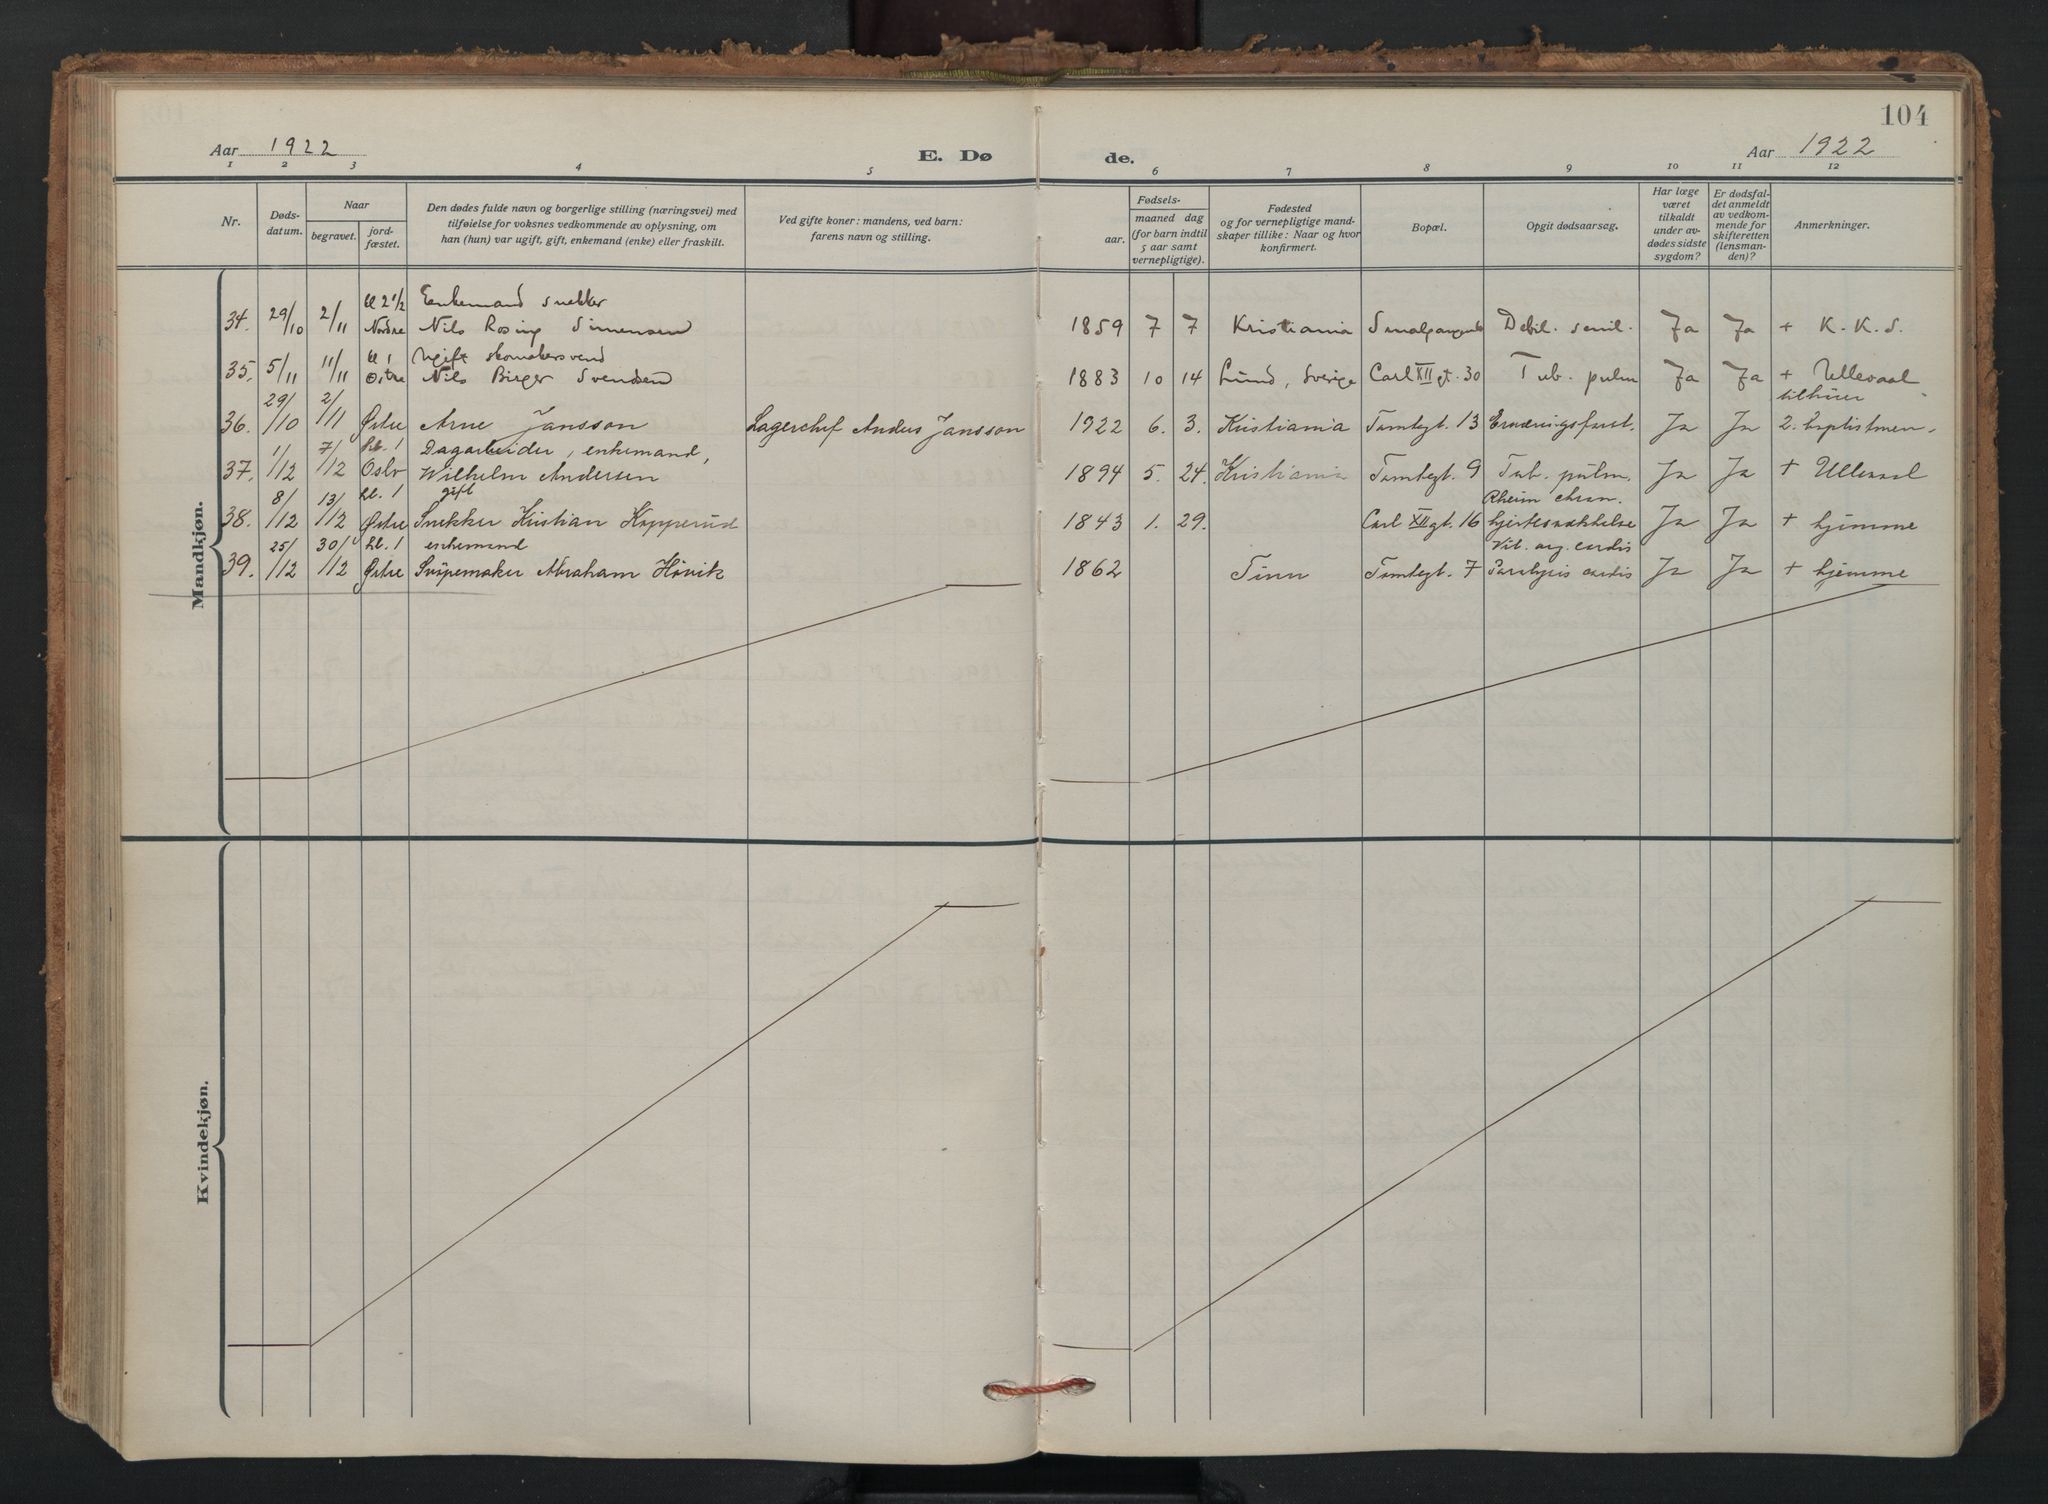 104
Aar 1922
E. Dø de.
Aar 1922
1 2 3 4 5 6 7 8 9 10 11 12
Nr.
Døds-
datum.
Naar
begravet.
jord-
fæstet.
Den dødes fulde navn og borgerlige stilling (næringsvei) med
tilføielse for voksnes vedkommende av oplysning, om
han (hun) var ugift, gift, enkemand (enke) eller fraskilt.
Ved gifte koner: mandens, ved barn:
farens navn og stilling.
Fødsels-
aar.
maaned dag
(for barn indtil
5 aar samt
vernepligtige).
Fødested
og for vernepligtige mand-
skaper tillike: Naar og hvor
konfirmert.
Bopæl.
Opgit dødsaarsag.
Har læge
været
tilkaldt
under av-
dødes sidste
sygdom?
Er dødsfal-
det anmeldt
av vedkom-
mende for
skifteretten
(lensman-
den)?
Anmerkninger.
Mandkjøn.
kl 2 1/2 Enkemand snekker
34. 29/10 2/11 Nordre Nils Rosing Simensen 1859 7 7 Kristiania Debil. senil. Ja Ja + K. K. S.
kl 1 Ugift skomakersvend
35. 5/11 11/11 Østre Nils Birger Svendsen 1883 10 14 Lund, Sverige Carl XII gt. 30 Tub. pulm Ja Ja + Ullevaal
tilhører
36. 29/10 2/11 Østre Arne Jansson Lagerchef Anders Jansson 1922 6. 3. Kristiania Tomtegt. 13 Ernæringsforst. Ja Ja 2. baptistmen.
kl. 1 Dagarbeider, enkemand,
37. 1/12 7/12 Oslo Wilhelm Andersen 1894 5. 24. Kristiania Tomtegt. 9 Tub. pulm. Ja Ja + Ullevaal
kl. 1 gift Rheum chron.
38. 8/12 13/12 Østre Snekker Kristian Kopperud 1843 1. 29. Carl XII gt. 16 hjertesvækkelse Ja Ja + hjemme
kl. 1 enkemand Vit. org. cordis
39. 25/12 30/12 Østre Svøpemaker Abraham Høvik 1862 Tinn Tomtegt. 7 Paralysis cordis Ja Ja + hjemme
Kvindekjøn.